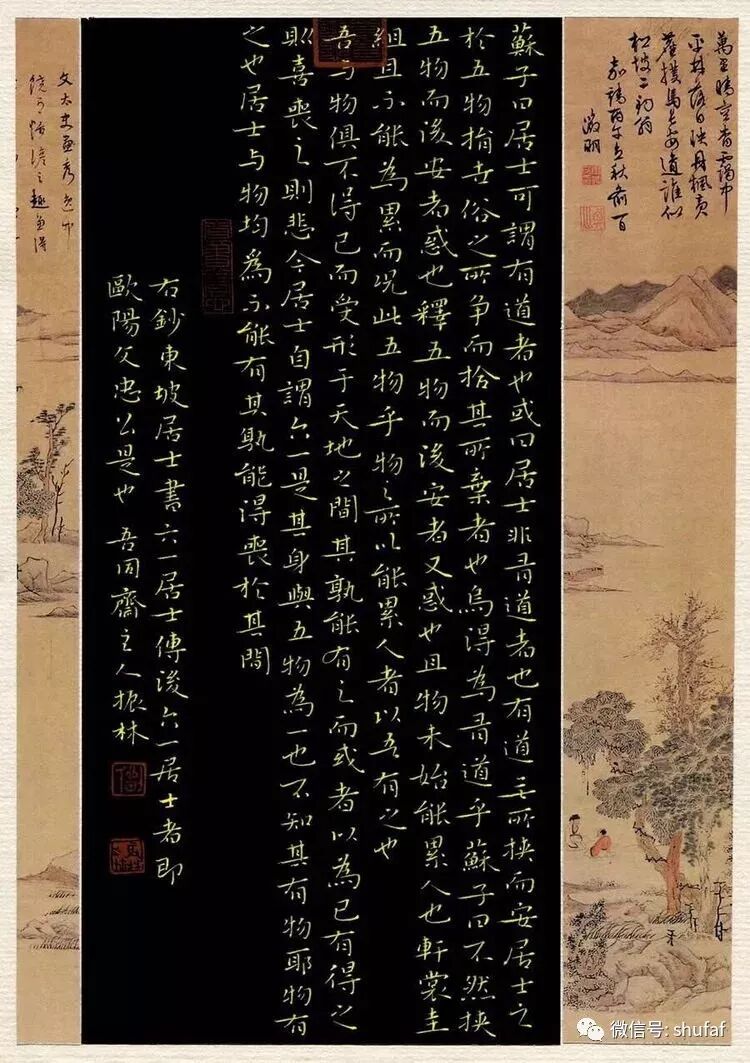 萬里晴空杳靄中
平林落日映丹楓黃
塵撲馬長安道誰似
松坡二釣翁
嘉靖丙午立秋前
徵明
蘇子曰居士可謂有道者也或曰居士非有道者也有道无所挟而安居士之
於五物捐世俗之所争而拾其所棄者也烏得為有道乎蘇子曰不然挟
五物而後安者惑也釋五物而後安者又惑也且物未始能累人也軒裳圭
組且不能為累而况此五物乎物之所以能累人者以吾有之也
吾与物俱不得已而受形于天地之間其孰能有之而或者以為己有得之
則喜喪之則悲今居士自謂六一是其身與五物為一也不知其有物耶物有
之也居士与物均為不能有其孰能得喪於其間
右鈔東坡居士書六一居士傳後六一居士者即
歐陽文忠公是也 吾同齋主人振林
文太史畫秀逸中
微信号: shufaf